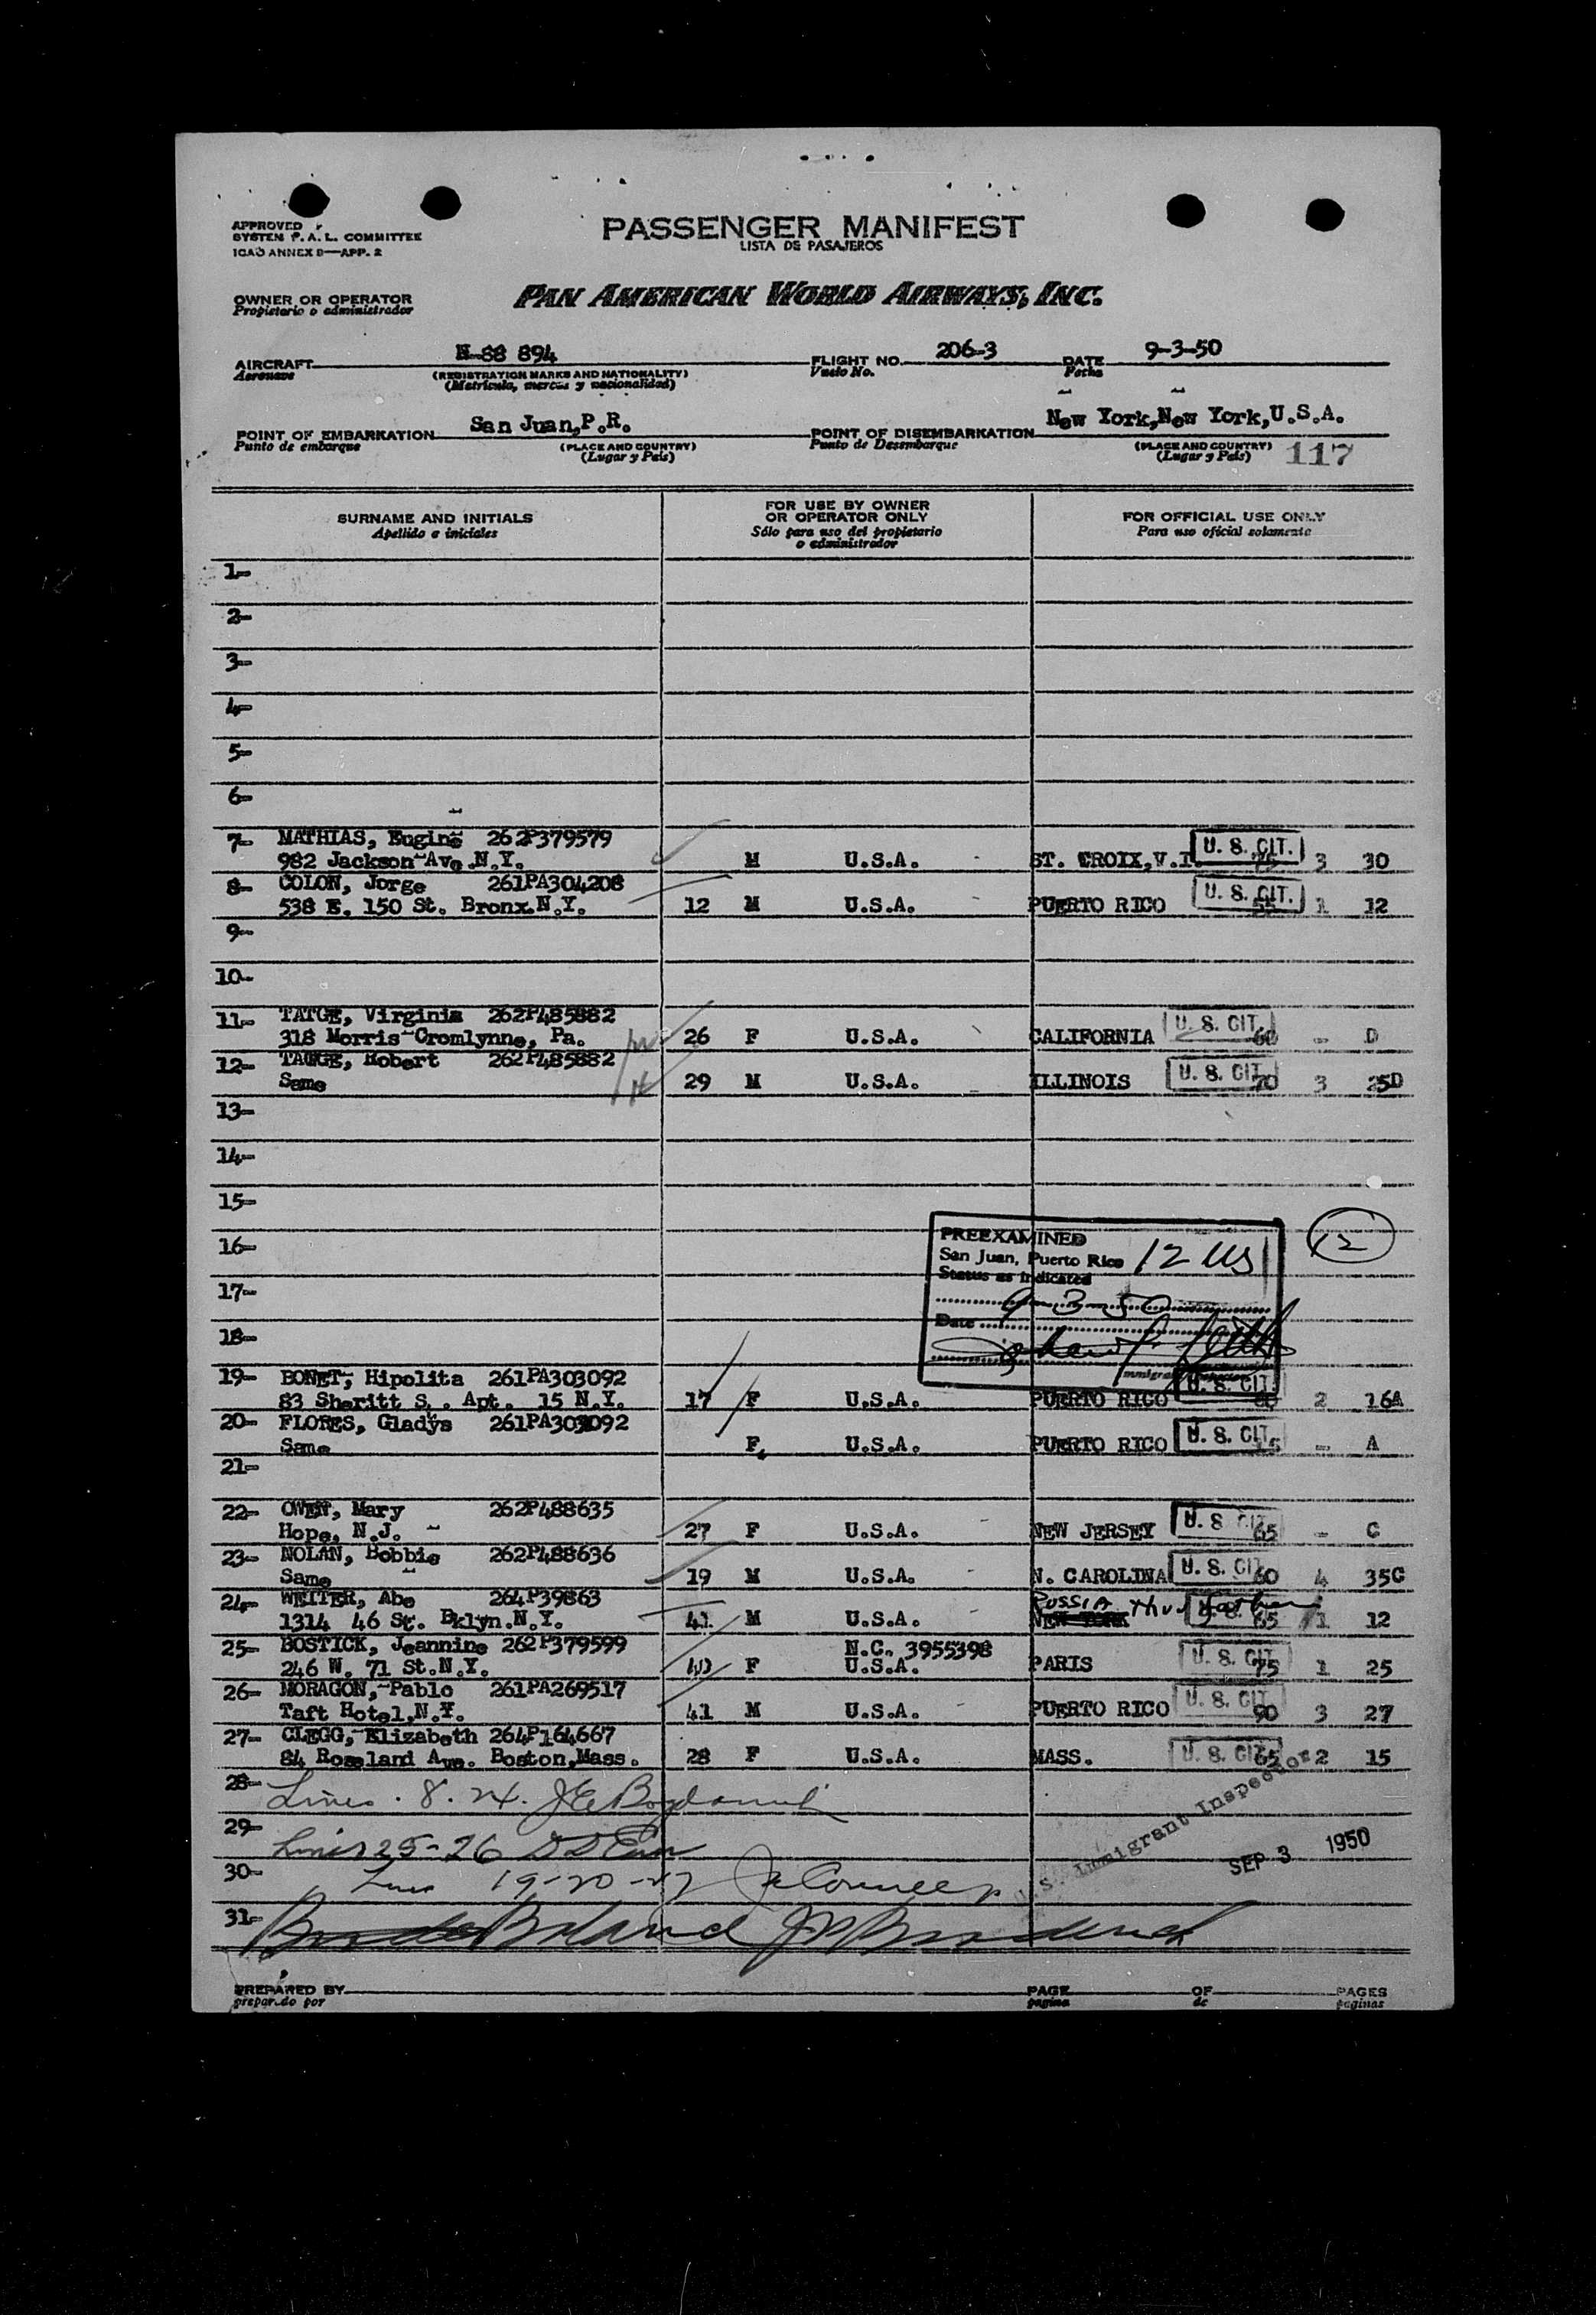 APPROVED
SYSTEM P. A. L. COMMITTEE
ICAO ANNEX 9—APP. 2
PASSENGER MANIFEST
LISTA DE PASAJEROS
OWNER OR OPERATOR
Propietario o administrador
PAN AMERICAN WORLD AIRWAYS, INC.
AIRCRAFT N-88 894 FLIGHT NO. 206-3 DATE 9-3-50
Aeronave (REGISTRATION MARKS AND NATIONALITY) Vuelo No. Fecha
(Matricula, marcas y nacionalidad)
POINT OF EMBARKATION San Juan,P.R. POINT OF DISEMBARKATION New York,New York,U.S.A.
Punto de embarque (PLACE AND COUNTRY) Punto de Desembarque (PLACE AND COUNTRY)
(Lugar y Pais) (Lugar y Pais) 117
SURNAME AND INITIALS FOR USE BY OWNER OR OPERATOR ONLY FOR OFFICIAL USE ONLY
Apellido e iniciales Sólo para uso del propietario o administrador Para uso oficial solamente
1-
2-
3-
4-
5-
6-
7- MATHIAS, Eugine 262P379579
982 Jackson Ave N.Y. M U.S.A. ST. CROIX,V.I. U. S. CIT. 75 3 30
8- COLON, Jorge 261PA304208
538 E. 150 St. Bronx N.Y. 12 M U.S.A. PUERTO RICO U. S. CIT. 55 1 12
9-
10-
11- TATGE, Virginia 262P485882
318 Morris Cromlynne, Pa. 26 F U.S.A. CALIFORNIA U. S. CIT. 60 - D
12- TATGE, Robert 262P485882
Same 29 M U.S.A. ILLINOIS U. S. CIT. 70 3 25D
13-
14-
15-
16-
17-
18-
PREEXAMINED
San Juan, Puerto Rico 12 US
Status as indicated
9-3-50
Date
12
19- BONET, Hipolita 261PA303092
83 Sheritt S. Apt. 15 N.Y. 17 F U.S.A. PUERTO RICO U. S. CIT. 2 16A
20- FLORES, Gladys 261PA303092
Same F U.S.A. PUERTO RICO U. S. CIT. - A
21-
22- OWEN, Mary 262P488635
Hope, N.J. 27 F U.S.A. NEW JERSEY U. S. CIT. 65 - C
23- NOLAN, Bobbie 262P488636
Same 19 M U.S.A. N. CAROLINA U. S. CIT. 60 4 35C
24- WEITER, Abe 264P39863 RUSSIA thru father
1314 46 St. Bklyn.N.Y. 41 M U.S.A. NEW YORK U. S. 65 1 12
25- BOSTICK, Jeannine 262P379599 N.C. 3955398
246 W. 71 St.N.Y. 40 F U.S.A. PARIS U. S. CIT. 75 1 25
26- MORAGON, Pablo 261PA269517
Taft Hotel,N.Y. 41 M U.S.A. PUERTO RICO U. S. CIT. 90 3 27
27- CLEGG, Elizabeth 264P164667
84 Roseland Ave. Boston,Mass. 28 F U.S.A. MASS. U. S. CIT. 65 2 15
28- Lines 8.24.
29- Lines 25-26
30- Lines 19-20-27
U.S. Immigrant Inspector
SEP 3 1950
31-
PREPARED BY PAGE OF PAGES
preparado por pagina de paginas